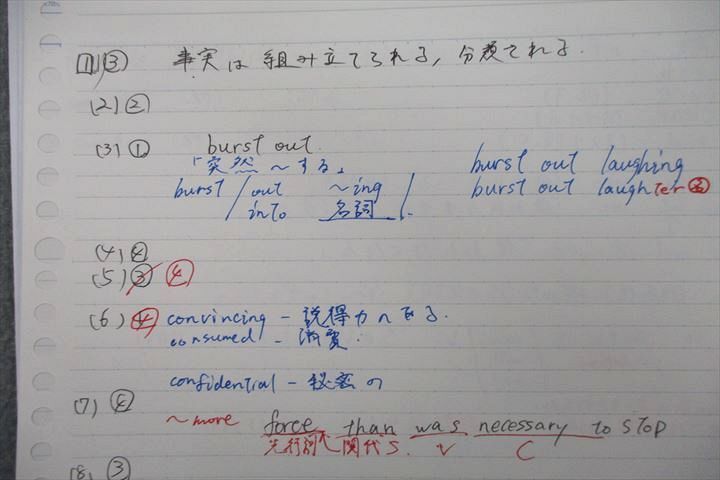 (1) ③ 事実は組み立てられる,分類される.
(2) ②
(3) ① burst out
「突然~する」 burst out laughing
burst / out ~ing burst out laughter 名
into 名詞
(4) ④
(5) ③ ④
(6) ④ convincing - 説得力のある.
consumed - 消費.
confidential - 秘密の
(7) ④
~more force than was necessary to stop
先行詞 関代S. V C
(8) ③